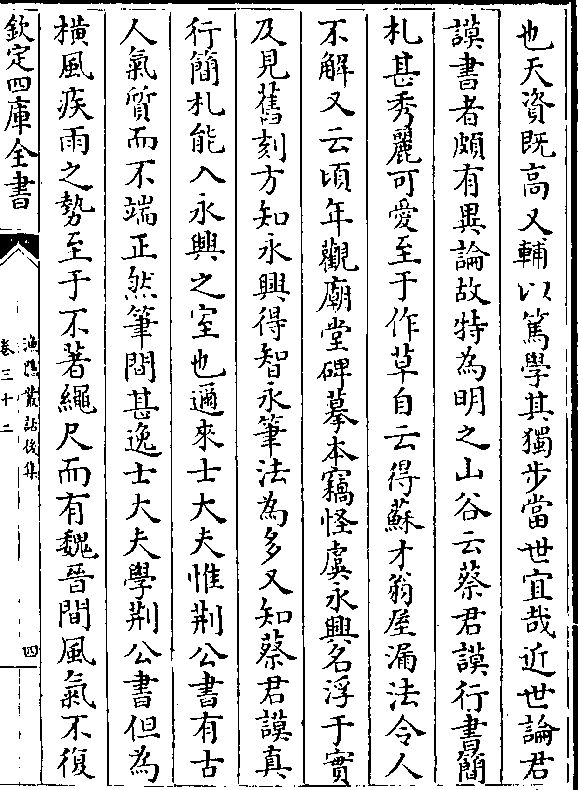 也天資既高又輔以篤學其獨步當世宜哉近世論君
謨書者頗有異論故特為明之山谷云蔡君謨行書簡
札甚秀麗可愛至于作草自云得蘇才翁屋漏法令人
不解又云頃年觀廟堂碑摹本竊怪虞永興名浮于實
及見舊刻方知永興得智永筆法為多又知蔡君謨真
行簡札能入永興之室也邇來士大夫惟荆公書有古
人氣質而不端正然筆間甚逸士大夫學荆公書但為
横風疾雨之勢至于不著繩尺而有魏晉間風氣不復
欽定四庫全書
漁隱叢話後集
卷三十二
四